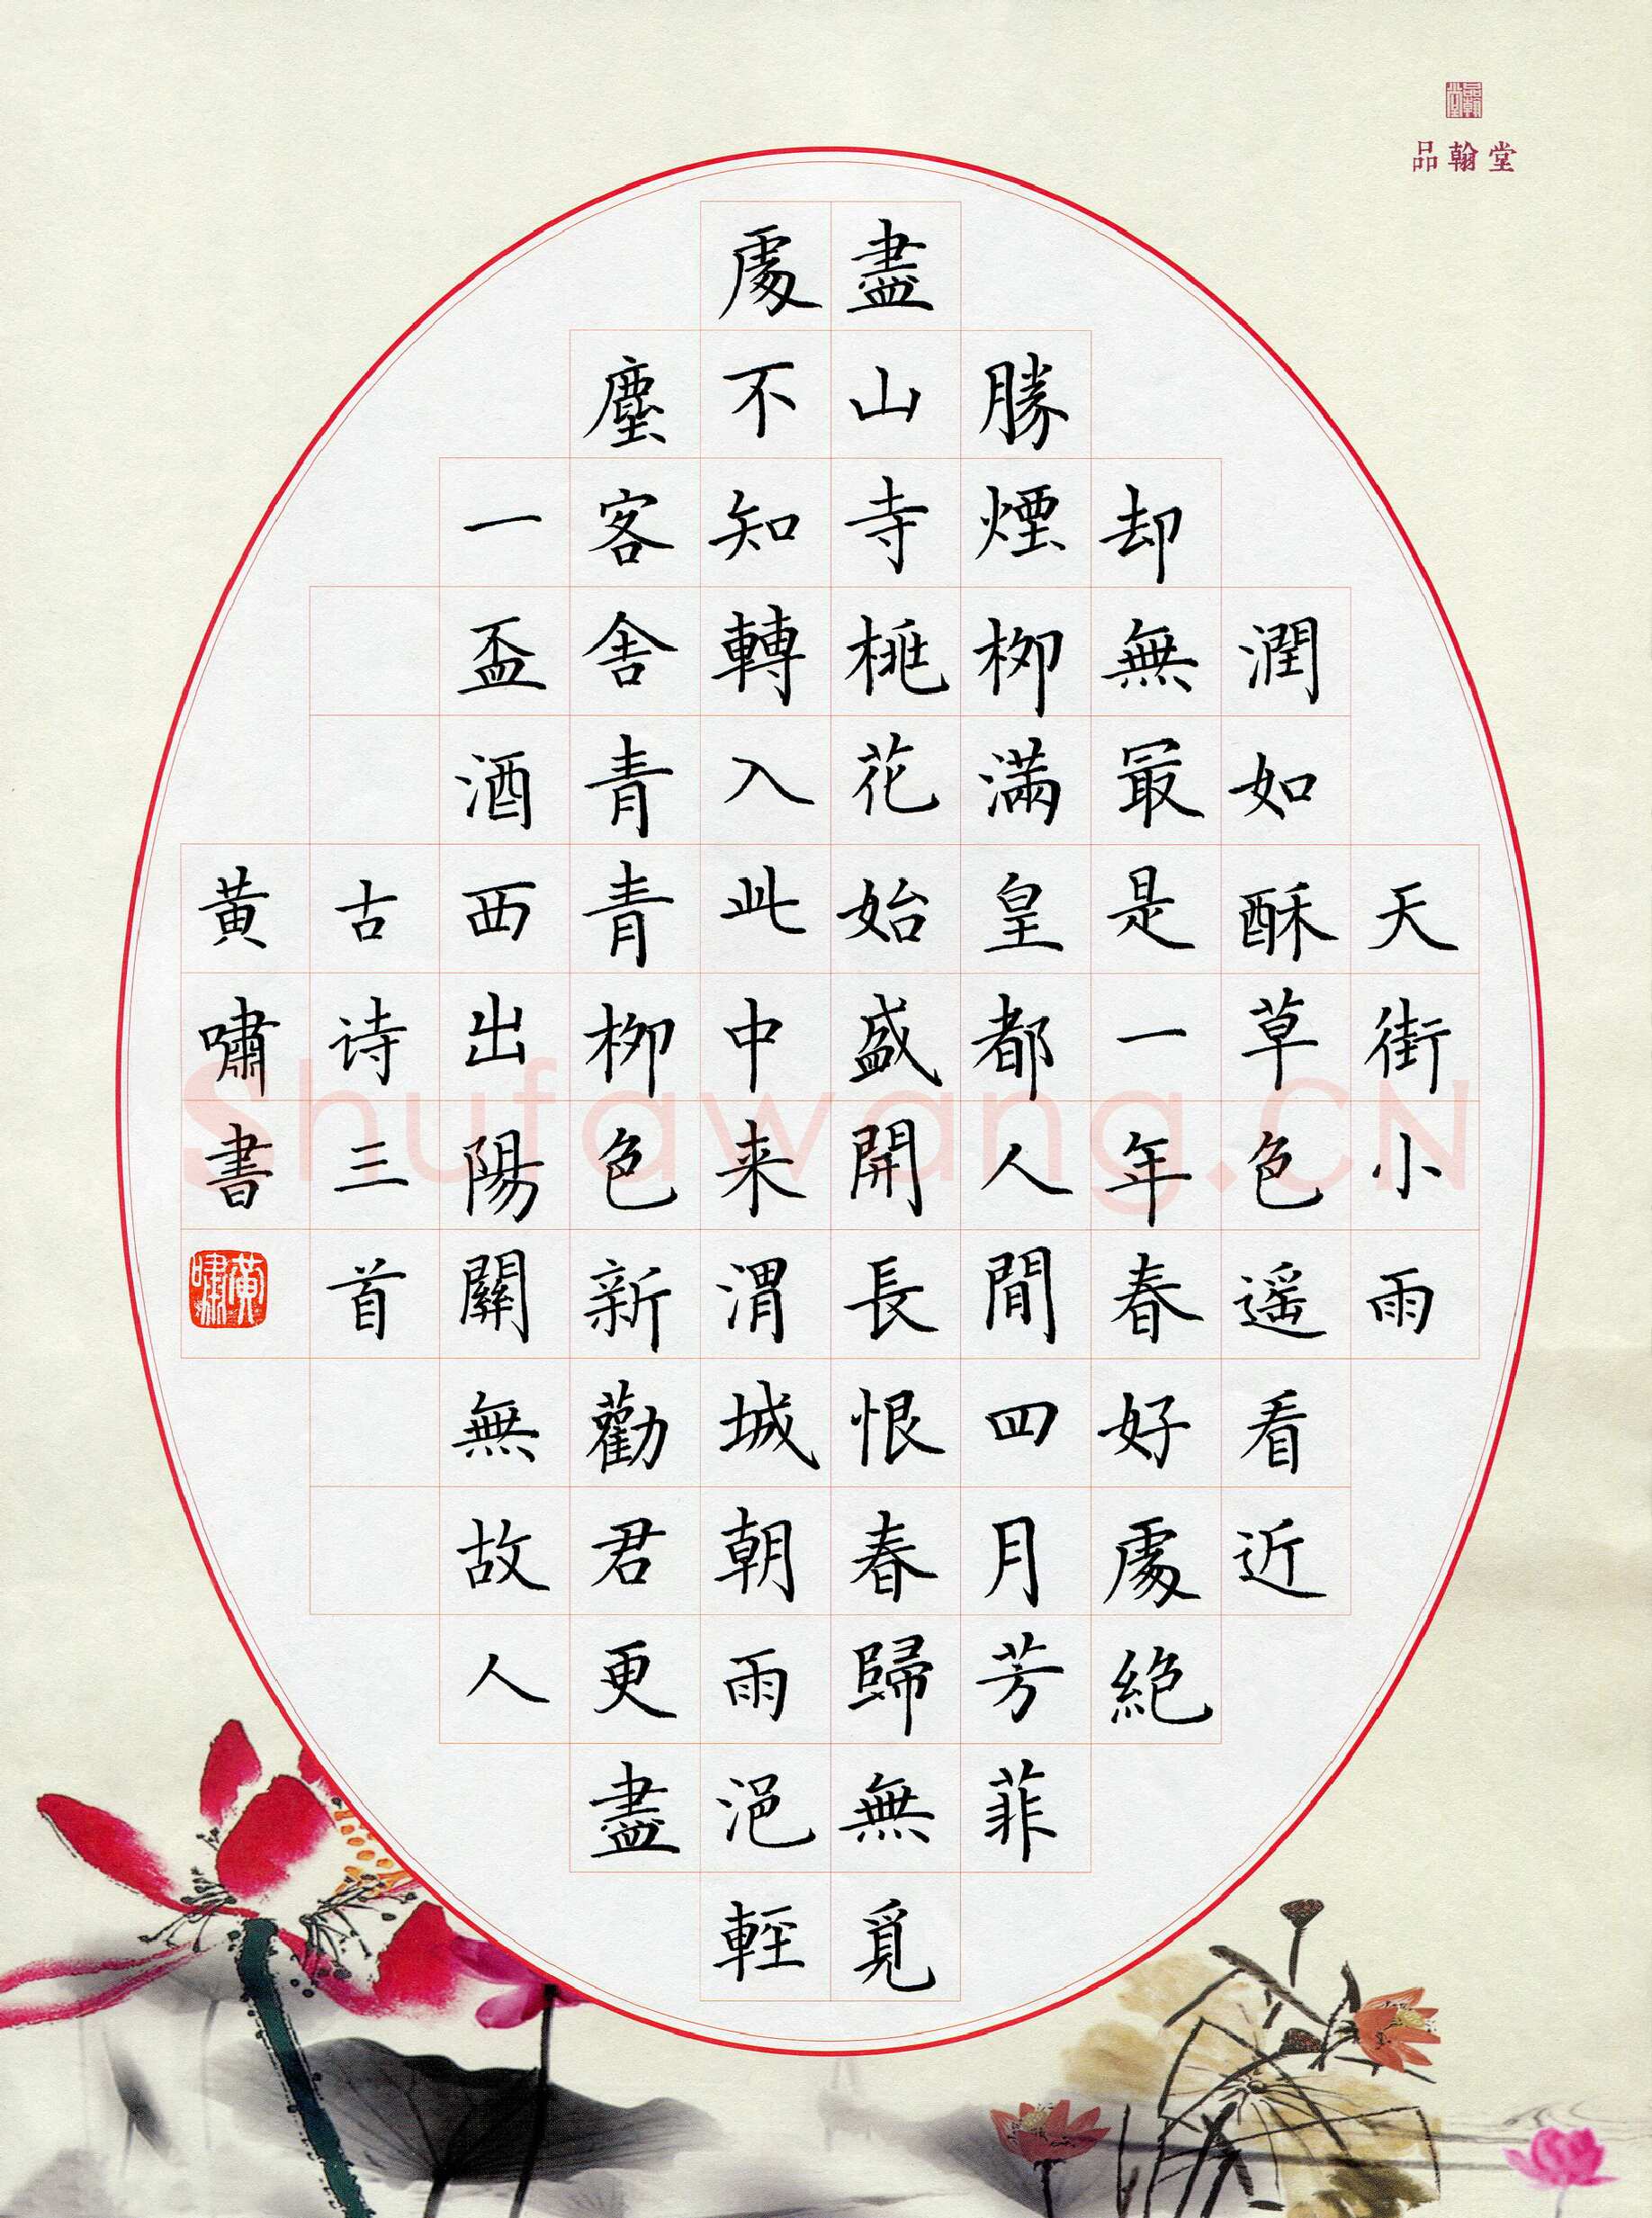 品翰堂
品翰堂
天街小雨
潤如酥草色遥看近
却無最是一年春好處絶
勝煙柳滿皇都人間四月芳菲
盡山寺桃花始盛開長恨春歸無覓
處不知轉入此中来渭城朝雨浥輕
塵客舍青青柳色新勸君更盡
一盃酒西出陽關無故人
古诗三首
黄嘯書
黄嘯
Shufawang.CN